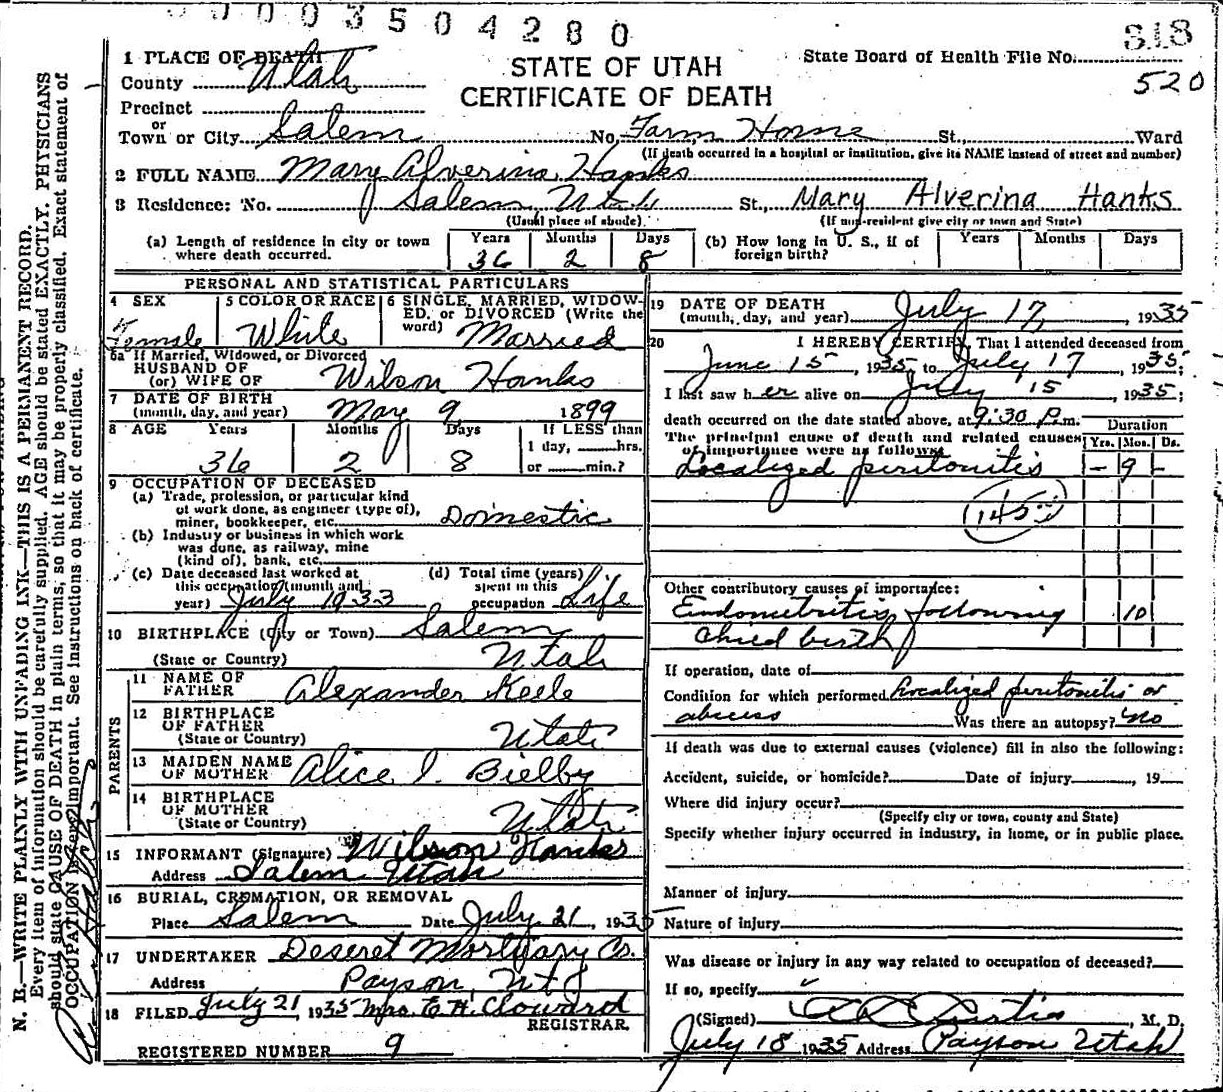 0 0 0 0 3 5 0 4 2 8 0
318
520
State Board of Health File No.
STATE OF UTAH
CERTIFICATE OF DEATH
1 PLACE OF DEATH
County Utah
Precinct
or
Town or City Salem No. Farm Home St. Ward
(If death occurred in a hospital or institution, give its NAME instead of street and number)
2 FULL NAME Mary Alverina Hanks
3 Residence: No. Salem, Utah St., Mary Alverina Hanks
(Usual place of abode) (If non-resident give city or town and State)
(a) Length of residence in city or town where death occurred. Years 36 Months 2 Days 8
(b) How long in U. S., if of foreign birth? Years Months Days
PERSONAL AND STATISTICAL PARTICULARS
4 SEX Female
5 COLOR OR RACE White
6 SINGLE, MARRIED, WIDOWED, or DIVORCED (Write the word) Married
6a If Married, Widowed, or Divorced
HUSBAND OF
(or) WIFE OF Wilson Hanks
7 DATE OF BIRTH
(month, day, and year) May 9 1899
8 AGE Years 36 Months 2 Days 8 If LESS than 1 day, hrs. or min.?
9 OCCUPATION OF DECEASED
(a) Trade, profession, or particular kind
of work done, as engineer (type of),
miner, bookkeeper, etc. Domestic
(b) Industry or business in which work
was done, as railway, mine
(kind of), bank, etc.
(c) Date deceased last worked at
this occupation (month and
year) July 1933
(d) Total time (years)
spent in this
occupation Life
10 BIRTHPLACE (City or Town) Salem
(State or Country) Utah
PARENTS
11 NAME OF
FATHER Alexander Keele
12 BIRTHPLACE
OF FATHER
(State or Country) Utah
13 MAIDEN NAME
OF MOTHER Alice I. Bielby
14 BIRTHPLACE
OF MOTHER
(State or Country) Utah
15 INFORMANT (Signature) Wilson Hanks
Address Salem Utah
16 BURIAL, CREMATION, OR REMOVAL
Place Salem Date July 21, 1935
17 UNDERTAKER Deseret Mortuary Co.
Address Payson, Ut
18 FILED July 21 1935 Mrs. E H. Cloward
REGISTRAR.
REGISTERED NUMBER 9
19 DATE OF DEATH
(month, day, and year) July 17, 1935
20 I HEREBY CERTIFY, That I attended deceased from
June 15, 1935, to July 17, 1935;
I last saw her alive on July 15, 1935;
death occurred on the date stated above, at 9:30 P.m.
Duration
The principal cause of death and related causes Yrs. Mos. Ds.
of importance were as follows:
Localized peritonitis - 9 -
145
Other contributory causes of importance:
Endometritis following 10
Child birth
If operation, date of
Condition for which performed Localized peritonitis or
abcess Was there an autopsy? no
If death was due to external causes (violence) fill in also the following:
Accident, suicide, or homicide? Date of injury, 19
Where did injury occur?
(Specify city or town, county and State)
Specify whether injury occurred in industry, in home, or in public place.
Manner of injury
Nature of injury
Was disease or injury in any way related to occupation of deceased?
If so, specify
(Signed) Curtis, M. D.
July 18 1935 Address Payson Utah
N. B.—WRITE PLAINLY WITH UNFADING INK—THIS IS A PERMANENT RECORD.
Every item of information should be carefully supplied. AGE should be stated EXACTLY. PHYSICIANS
should state CAUSE OF DEATH in plain terms, so that it may be properly classified. Exact statement of
OCCUPATION is very important. See instructions on back of certificate.